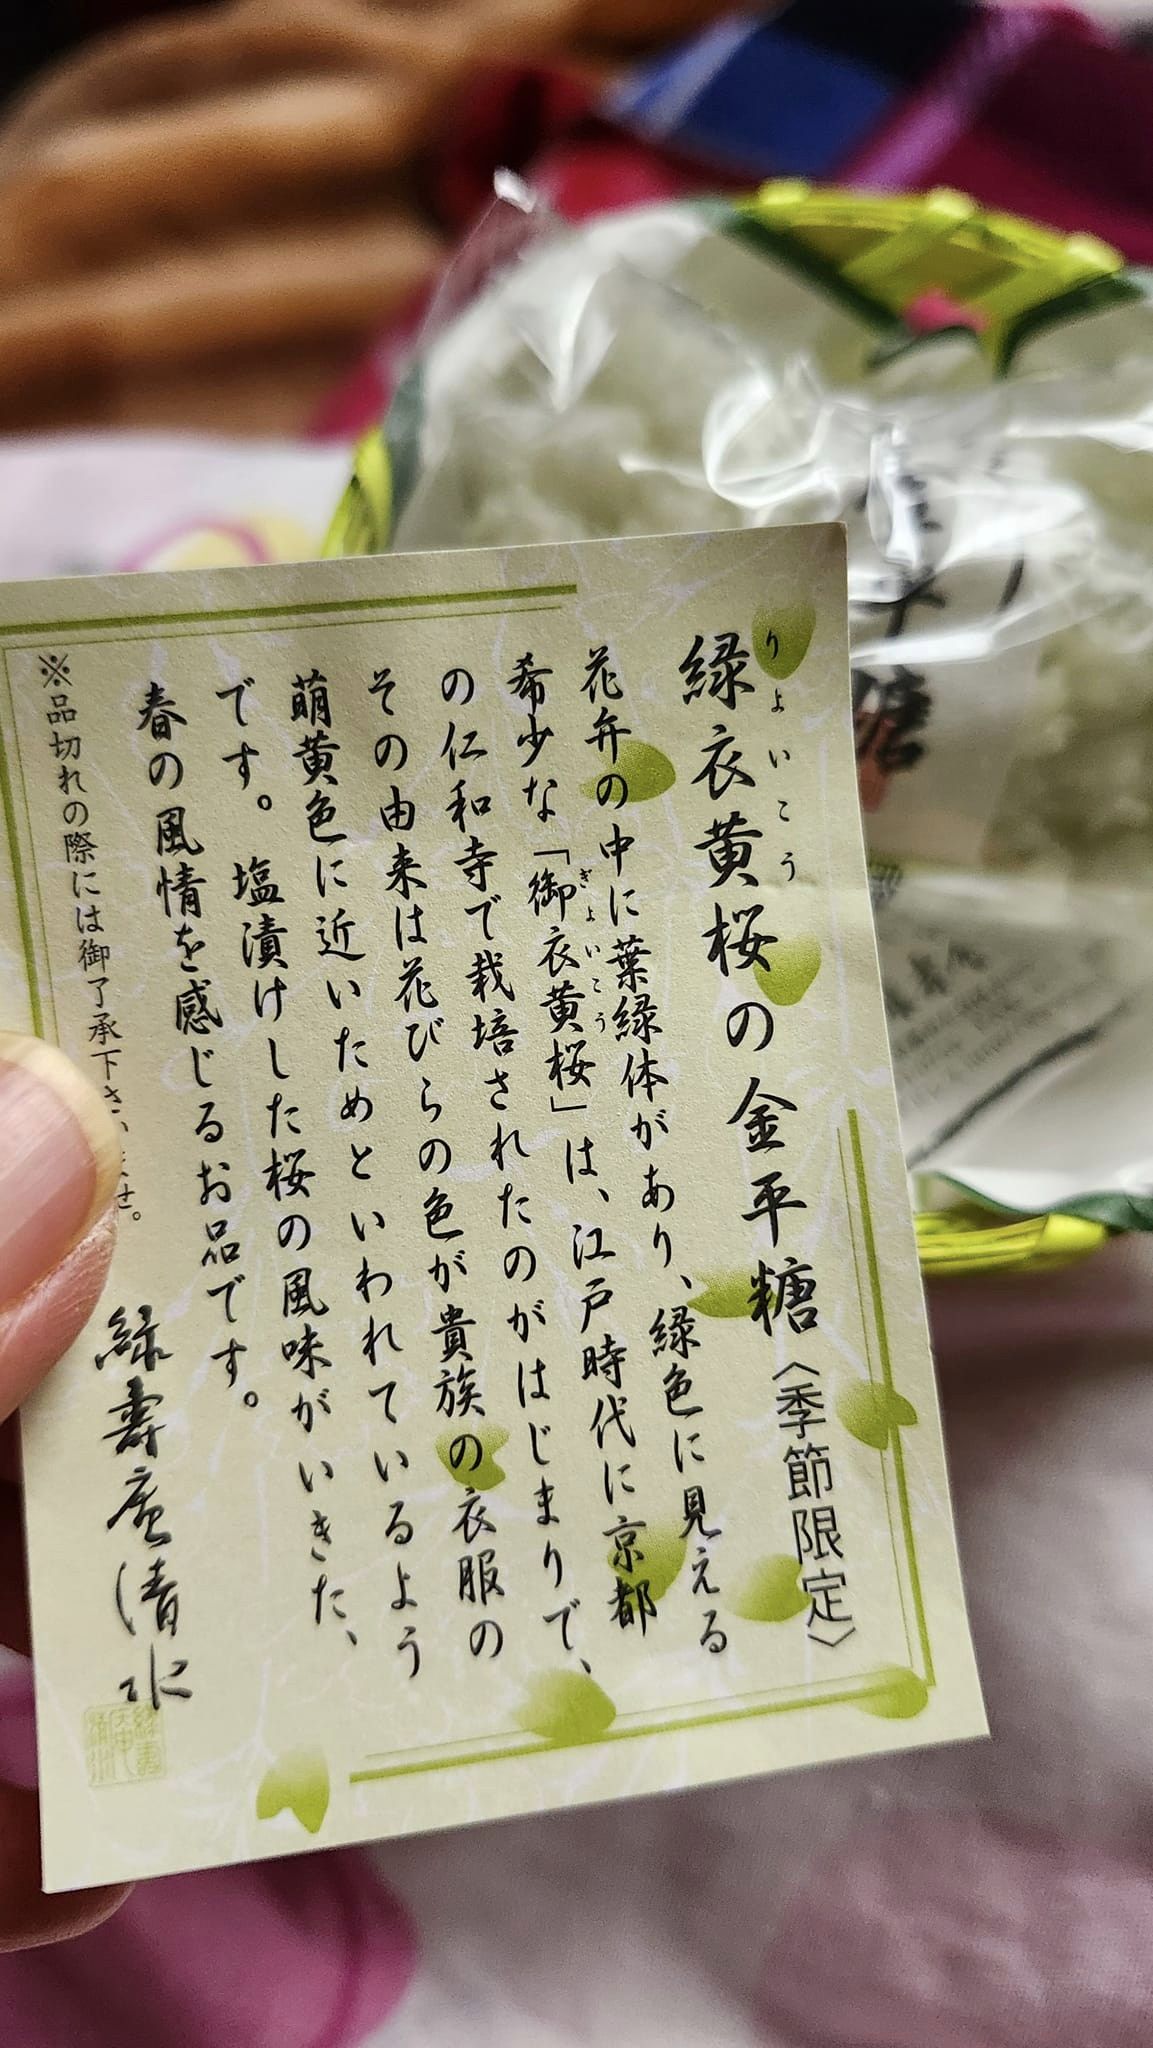 緑衣黄桜の金平糖〈季節限定〉
りょいこう
花弁の中に葉緑体があり、緑色に見える
希少な「御衣黄桜」は、江戸時代に京都
ぎょいこう
の仁和寺で栽培されたのがはじまりで、
その由来は花びらの色が貴族の衣服の
萌黄色に近いためといわれているよう
です。塩漬けした桜の風味がいきた、
春の風情を感じるお品です。
※品切れの際には御了承下さいませ。
緑壽庵清水
金平糖